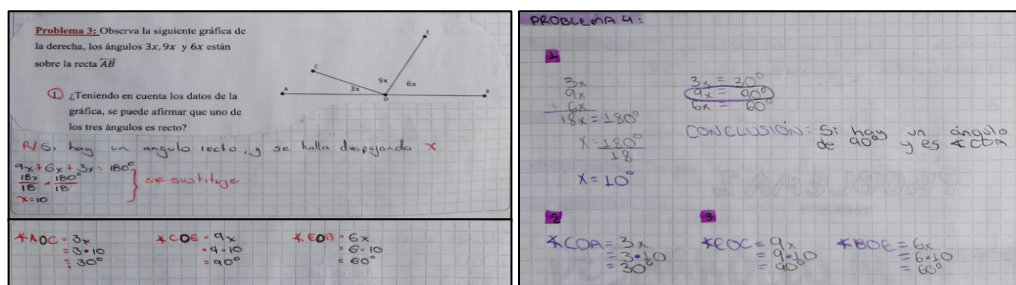 Problema 3: Observa la siguiente gráfica de
la derecha, los ángulos 3x, 9x y 6x están
sobre la recta AB
① ¿Teniendo en cuenta los datos de la
gráfica, se puede afirmar que uno de
los tres ángulos es recto?
C
E
9x
3x
6x
A
O
B
R/Si hay un angulo recto, y se halla despejando x
9x+6x+3x=180°
18x = 180°
18 18
x=10
se sustituye
∡AOC = 3x
= 3·10
= 30°
∡COE = 9x
= 9·10
= 90°
∡EOB = 6x
= 6·10
= 60°
PROBLEMA 4:
1
3x
9x
+ 6x
18x = 180°
x = 180°
18
x = 10°
3x = 30°
9x = 90°
6x = 60°
CONCLUSIÓN: Si hay un ángulo
de 90° y es ∡COA
2
∡COA = 3x
= 3·10
= 30°
3
∡EOC = 9x
= 9·10
= 90°
∡BOE = 6x
= 6·10
= 60°